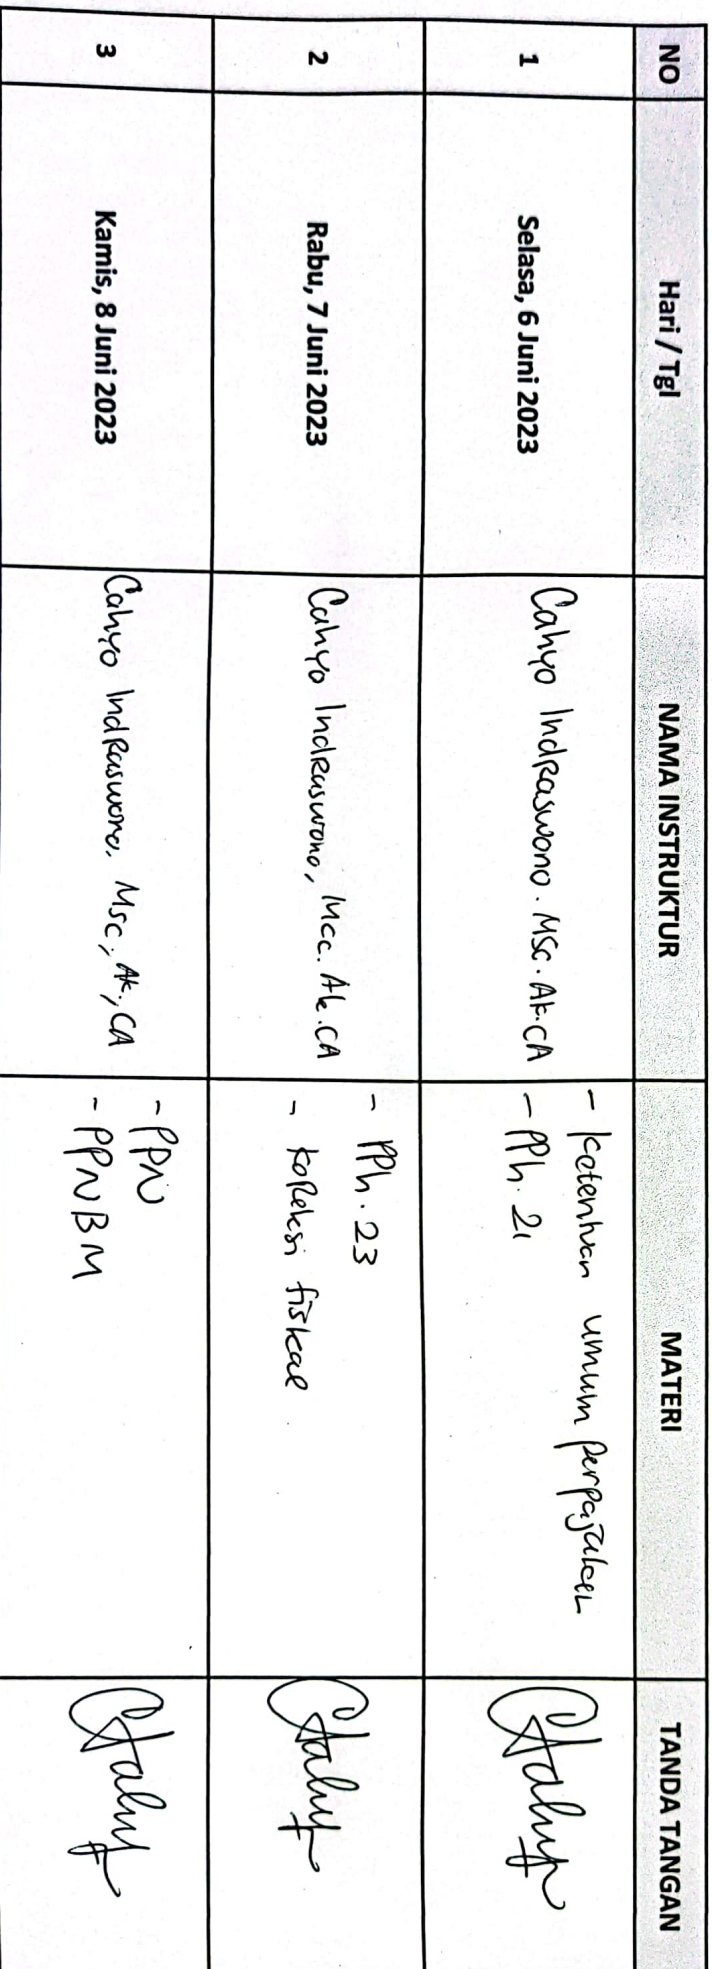 NO Hari / Tgl NAMA INSTRUKTUR MATERI TANDA TANGAN
1 Selasa, 6 Juni 2023 Cahyo Indraswono. MSc. Ak. CA
- Ketentuan umum perpajakan
- PPh. 21
2 Rabu, 7 Juni 2023 Cahyo Indraswono, Mcc. Ak. CA
- PPh. 23
- Koreksi fiskal
3 Kamis, 8 Juni 2023 Cahyo Indraswono, Msc, Ak., CA
- PPN
- PPNBM